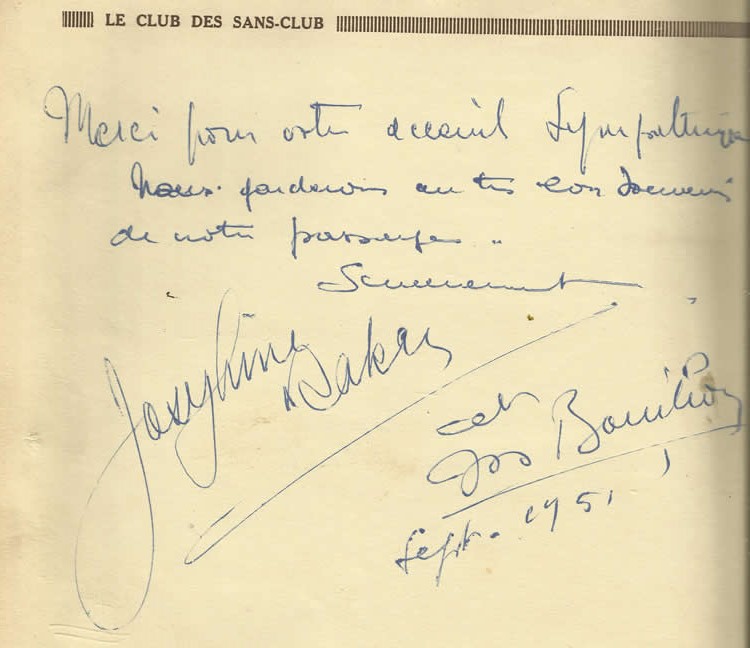 LE CLUB DES SANS-CLUB
Merci pour votre acceuil Sympathique
Nous garderons un très bon souvenir
de notre passage..
Sincèrement
Joséphine
Baker
et
Jo Bouillon
Sept. 1951